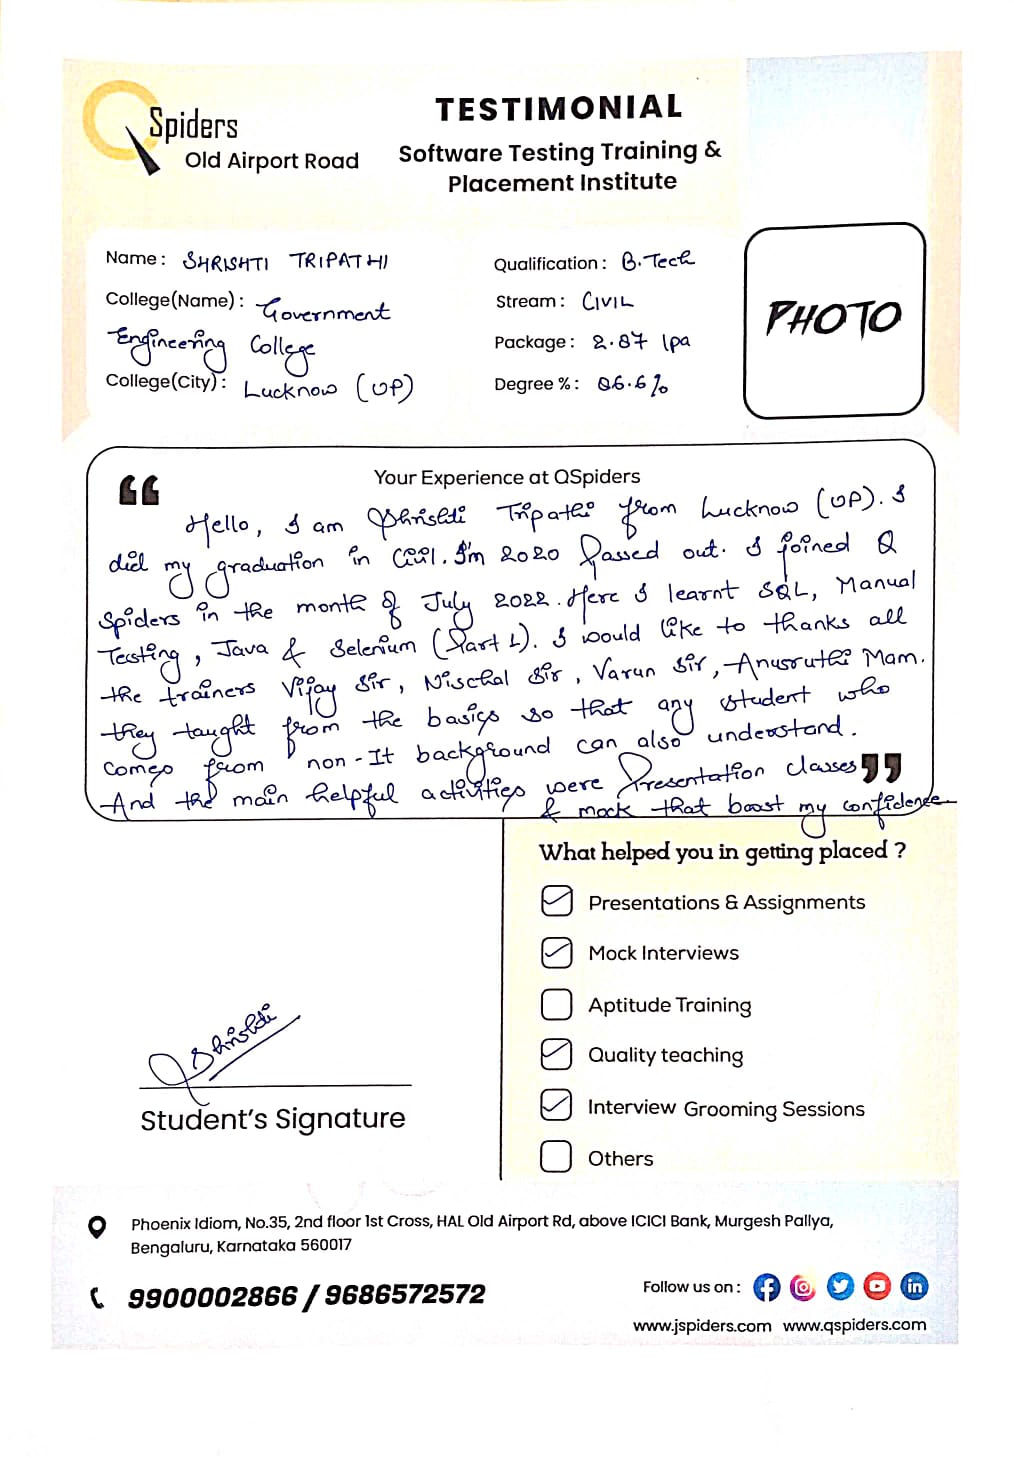 QSpiders
Old Airport Road
TESTIMONIAL
Software Testing Training &
Placement Institute
Name : SHRISHTI TRIPATHI
College(Name) : Government
Engineering College
College(City) : Lucknow (UP)
Qualification : B.Tech
Stream : CIVIL
Package : 2.87 lpa
Degree % : 86.6%
PHOTO
Your Experience at QSpiders
Hello, I am Shrishti Tripathi from Lucknow (UP). I
did my graduation in Civil. I'm 2020 passed out. I joined Q
Spiders in the month of July 2022. Here I learnt SQL, Manual
Testing, Java & Selenium (Part 1). I would like to thanks all
the trainers Vijay Sir, Nischal Sir, Varun Sir, Anusruthi Mam.
they taught from the basics so that any student who
comes from non-It background can also understand.
And the main helpful activities were Presentation classes
& mock that boost my confidence
What helped you in getting placed ?
Presentations & Assignments
Mock Interviews
Aptitude Training
Quality teaching
Interview Grooming Sessions
Others
Shrishti
Student's Signature
Phoenix Idiom, No.35, 2nd floor 1st Cross, HAL Old Airport Rd, above ICICI Bank, Murgesh Pallya,
Bengaluru, Karnataka 560017
9900002866 / 9686572572
Follow us on :
www.jspiders.com www.qspiders.com